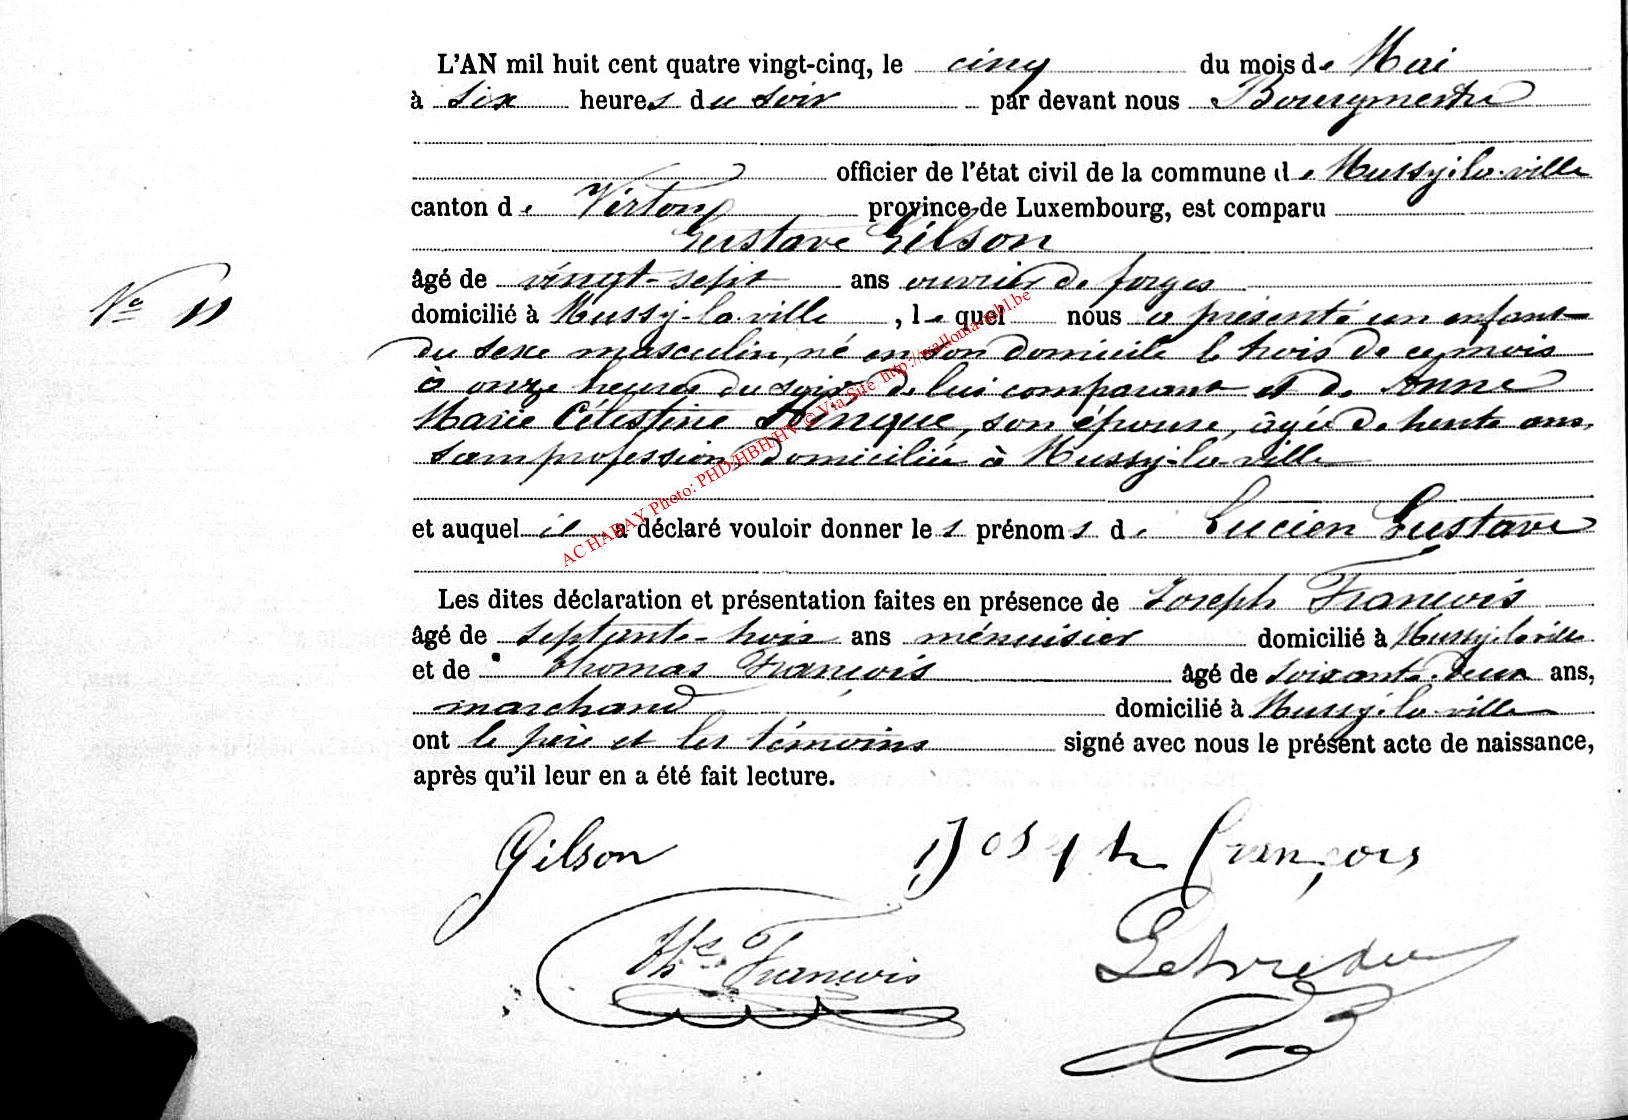 L'AN mil huit cent quatre vingt-cinq, le cinq du mois de Mai
à six heures du soir par devant nous Bourgmestre
officier de l'état civil de la commune de Mussy-la-ville
canton de Virton province de Luxembourg, est comparu
Gustave Gilson
âgé de vingt-sept ans ouvrier de forges
N° 11
domicilié à Mussy-la-ville, le quel nous a présenté un enfant
du sexe masculin, né en son domicile le trois de ce mois
à onze heures du soir de lui comparant et de Anne
Marie Célestine, son épouse, âgée de trente ans,
sans profession, domiciliée à Mussy-la-ville
et auquel il a déclaré vouloir donner les prénoms de Lucien Gustave
Les dites déclaration et présentation faites en présence de Joseph François
âgé de septante-trois ans menuisier domicilié à Mussy-la-ville
et de Thomas François âgé de soixante-deux ans,
marchand domicilié à Mussy-la-ville
ont le père et les témoins signé avec nous le présent acte de naissance,
après qu'il leur en a été fait lecture.
Gilson Joseph François
Ths François
AC HABAY Photo: PHD-HBH/HV © Via Site http://wallonia-asbl.be